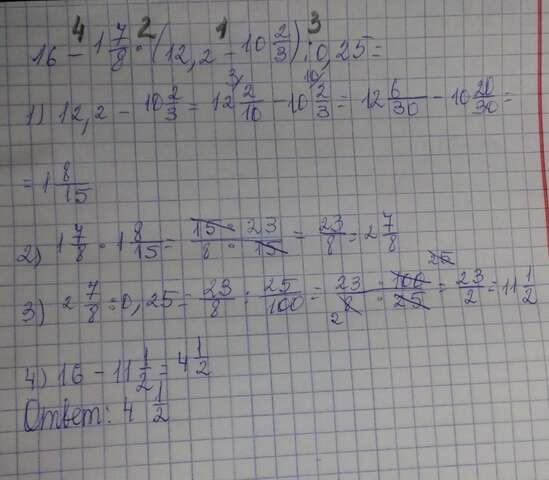 4 2 1 3
16 - 1 7/8 · (12,2 - 10 2/3) : 0,25 =
1) 12,2 - 10 2/3 = 12 2/10 - 10 2/3 = 12 6/30 - 10 20/30 =
= 1 8/15
2) 1 7/8 · 1 8/15 = 15 · 23 / 8 · 15 = 23/8 = 2 7/8
3) 2 7/8 : 0,25 = 23/8 : 25/100 = 23 · 100 / 8 · 25 = 23/2 = 11 1/2
4) 16 - 11 1/2 = 4 1/2
Ответ: 4 1/2